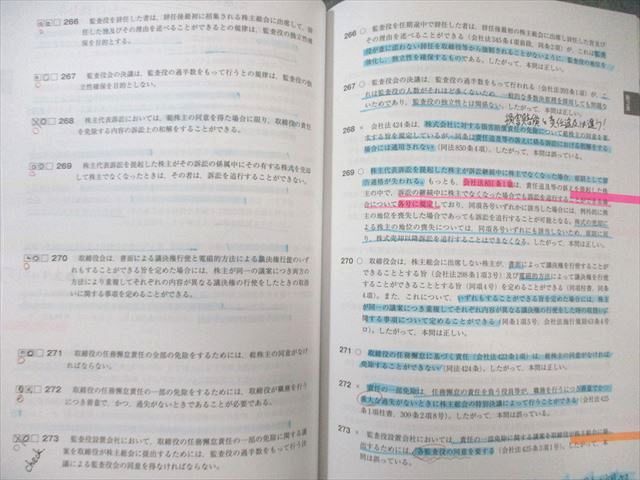 266 監査役を辞任した者は，辞任後最初に招集される株主総会に出席して，辞
任した旨及びその理由を述べることができるとの規律は，監査役の独立性確
保を目的とする。
267 監査役会の決議は，監査役の過半数をもって行うとの規律は，監査役の独
立性確保を目的としない。
268 株主代表訴訟においては，総株主の同意を得た場合に限り，取締役の責任
を免除する内容の訴訟上の和解をすることができる。
269 株主代表訴訟を提起した株主がその訴訟の係属中にその有する株式を売却
して株主でなくなったときは，その者は，訴訟を追行することができない。
270 取締役会は，書面による議決権行使と電磁的方法による議決権行使のいず
れもすることができる旨を定めた場合には，株主が同一の議案につき両方の
方法により重複してそれぞれの内容が異なる議決権の行使をしたときの取扱
いに関する事項を定めることができる。
271 取締役の任務懈怠責任の全部の免除をするためには，総株主の同意がなけ
ればならない。
272 取締役の任務懈怠責任の一部の免除をするためには，取締役が職務を行う
につき善意で，かつ，過失がないときであることが必要である。
273 監査役設置会社において，取締役の任務懈怠責任の一部の免除に関する議
案を取締役が株主総会に提出するためには，取締役の過半数をもって行う決
議による監査役会の同意を得なければならない。
check
266 ○ 監査役を任期途中で辞任した者は，辞任後最初の株主総会に出席し辞任した旨及び
その理由を述べることができる（会社法345条4項前段，同条2項）が，これは監査
役が意に沿わない辞任を取締役等から強制されることがないように，監査役の地位を
強化し，独立性を確保するものである。したがって，本問は正しい。
267 ○ 監査役会の決議は，監査役の過半数をもって行われる（会社法393条1項）が，こ
れは監査役の人数がそれほど多くないため，一般的な多数決原理を採用しても問題な
いためであり，監査役の独立性とは関係ない。したがって，本問は正しい。
268 × 会社法424条は，株式会社に対する損害賠償責任の免除について総株主の同意を要
求する旨を規定しているが，同条は責任追及等の訴えに係る訴訟における和解をする
場合には適用されない（同法850条4項）。したがって，本問は誤っている。
269 ○ 株主代表訴訟を提起した株主が訴訟継続中に株主でなくなった場合，原則として原
告適格が失われる。もっとも，会社法851条1項は，責任追及等の訴えを提起した株
主の中で，訴訟の継続中に株主でなくなった場合でも訴訟を追行することができる場
合について各号に規定しており，同項各号いずれかに該当した場合には，例外的に株
主の地位を喪失した場合であっても訴訟を追行することが可能となる。株式の売却に
よる株主の地位の喪失については，同項各号いずれにも該当しないため，原則に戻
り，株式売却以降訴訟を追行することはできなくなる。したがって，本問は正しい。
270 ○ 取締役会は，株主総会に出席しない株主が，書面によって議決権を行使することが
できることとする旨（会社法298条1項3号）及び電磁的方法によって議決権を行使
することができることとする旨（同項4号）を定めることができる（同項柱書，同条
4項）。また，これについて，いずれもすることができる旨を定めた場合には，株主
が同一の議案につき重複して異なる議決権の行使をした時の取扱いに
関する事項について定めることができる（同項5号，会社法施行規則63条4号
ロ）。したがって，本問は正しい。
271 ○ 取締役の任務懈怠に基づく責任（会社法423条1項）は，総株主の同意がなければ
免除することができない（同法424条）。したがって，本問は正しい。
272 × 責任の一部免除は，任務懈怠の責任を負う役員等が，職務を行うにつき善意でかつ
重大な過失がないときに株主総会の特別決議によって行うことができる（会社法425
条1項柱書，309条2項8号）。したがって，本問は誤っている。
273 × 監査役設置会社においては，責任の一部免除に関する議案を取締役が株主総会に提
出するためには，各監査役の同意を要する（会社法425条3項1号）。したがって，本
問は誤っている。